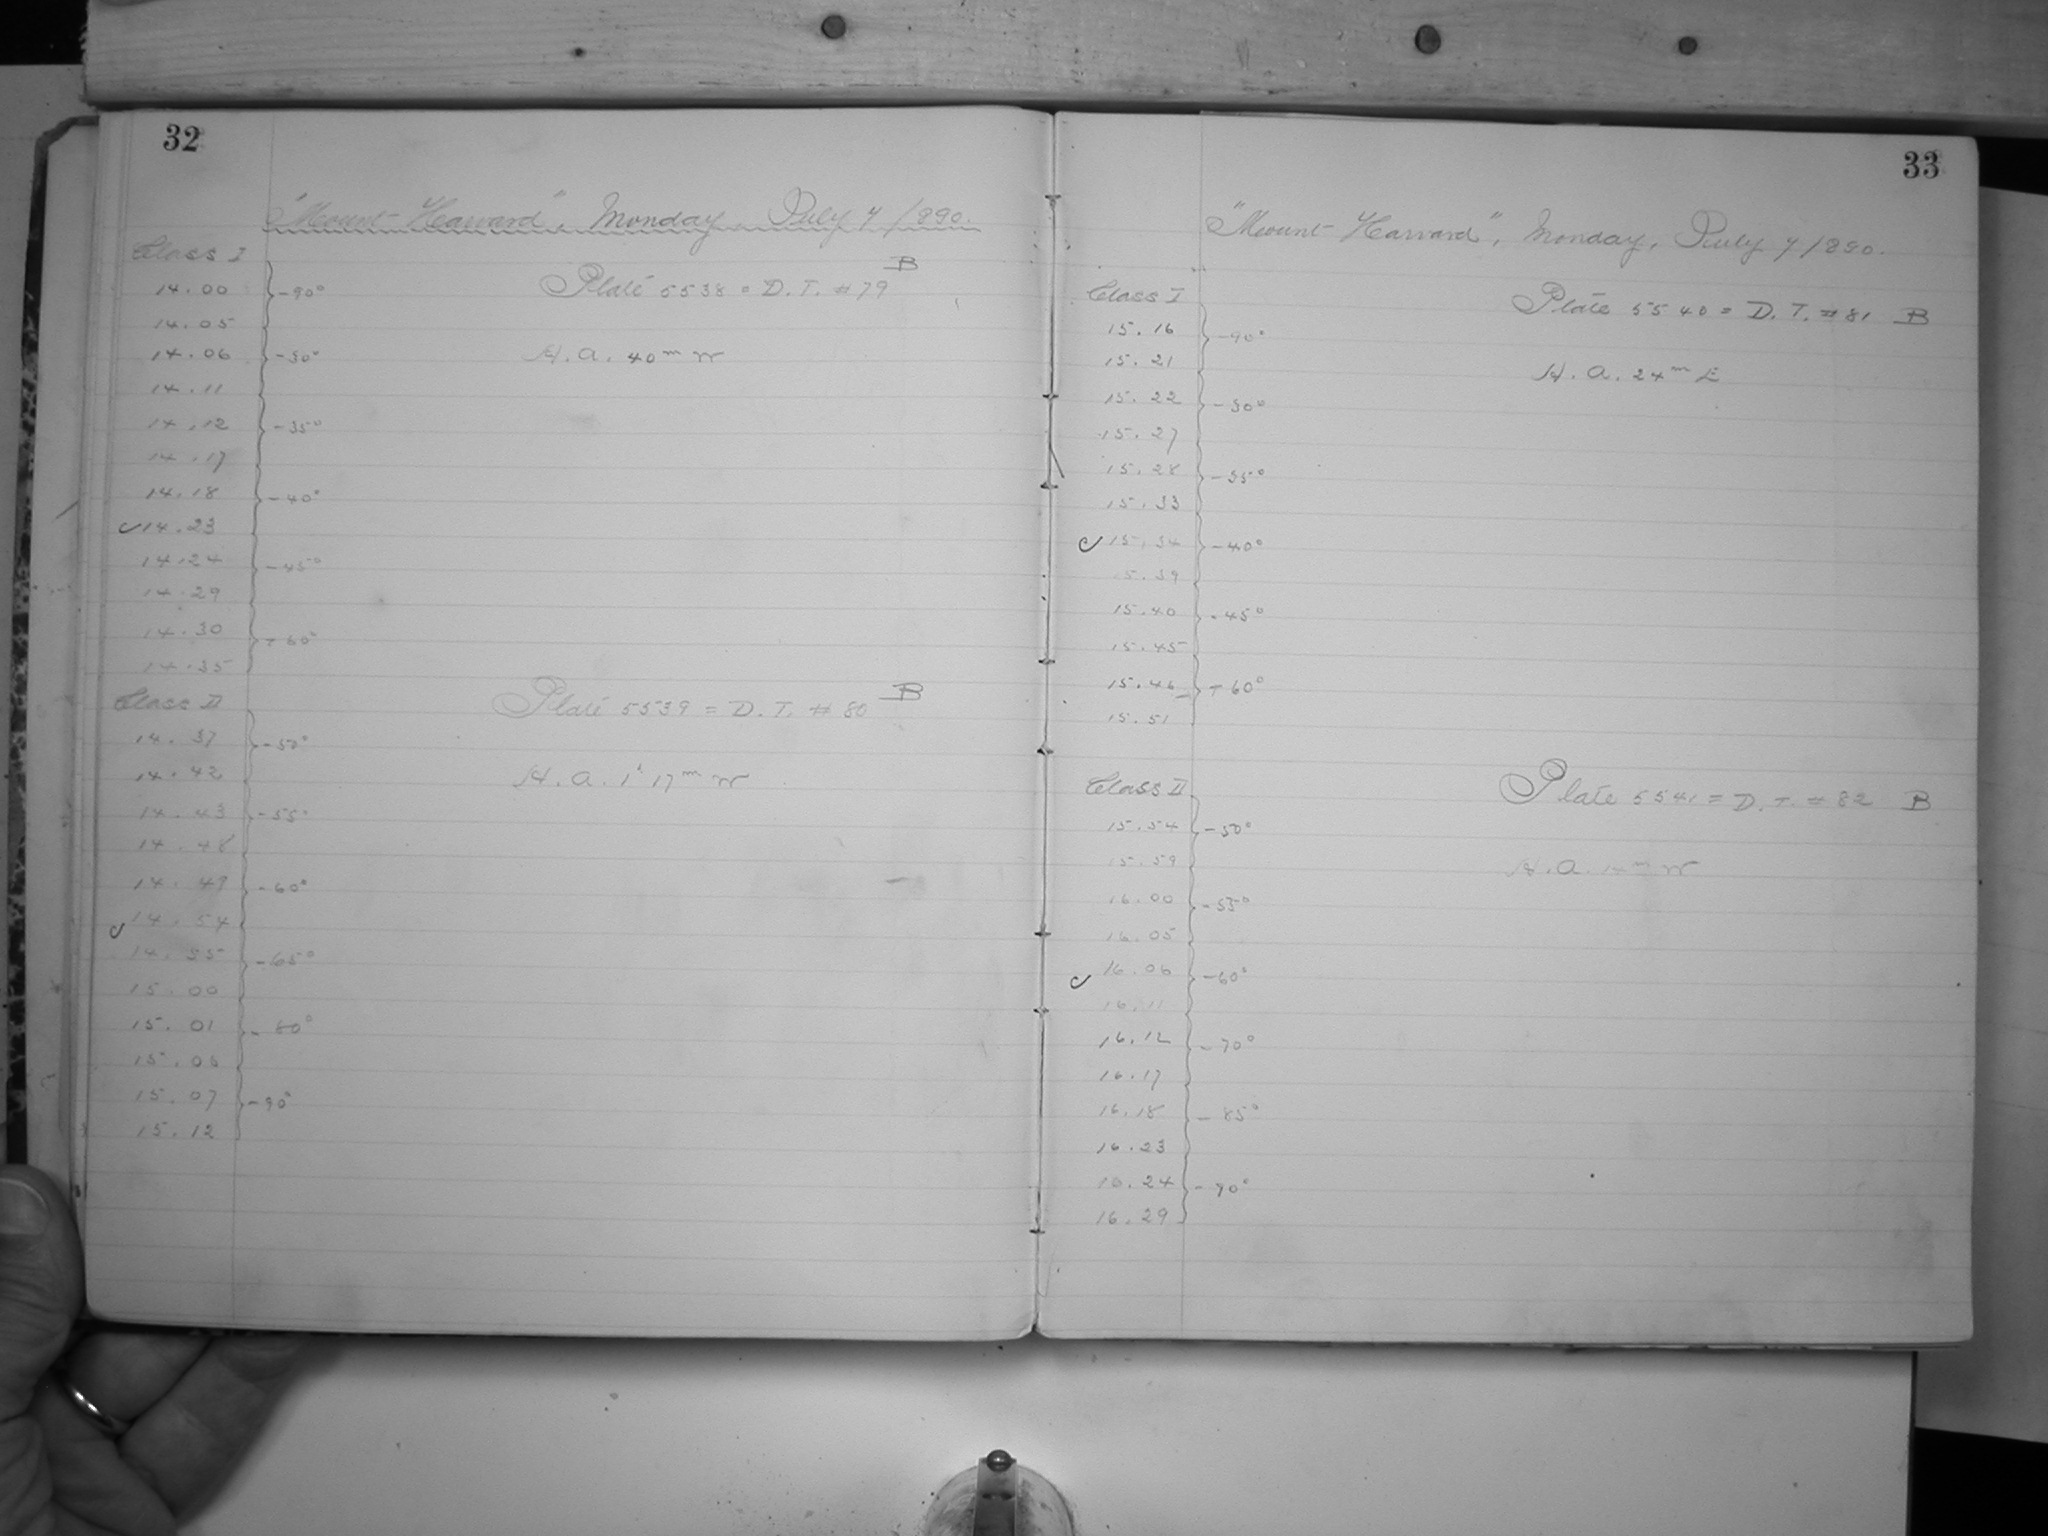 32
"Mount Harvard", Monday, July 7/890.
Class I
Plate 5538 = D. T. # 79 B
14.00 -90°
14.05
14.06 -30° H. A. 40m W
14.11
14.12 -35°
14.17
14.18 -40°
14.23
14.24 -45°
14.29
14.30 +60°
14.35
Class II Plate 5539 = D. T. # 80 B
14.37 -50°
14.42 H. A. 1h 17m W
14.43 -55°
14.48
14.49 -60°
14.54
14.55 -65°
15.00
15.01 -80°
15.06
15.07 -90°
15.12
33
"Mount Harvard", Monday, July 7/890.
Class I Plate 5540 = D. T. # 81 B
15.16 -90°
15.21 H. A. 24m E
15.22 -30°
15.27
15.28 -35°
15.33
15.34 -40°
15.39
15.40 -45°
15.45
15.46 +60°
15.51
Class II Plate 5541 = D. T. # 82 B
15.54 -50°
15.59 H. A. 14m W
16.00 -55°
16.05
16.06 -60°
16.11
16.12 -70°
16.17
16.18 -85°
16.23
16.24 -90°
16.29